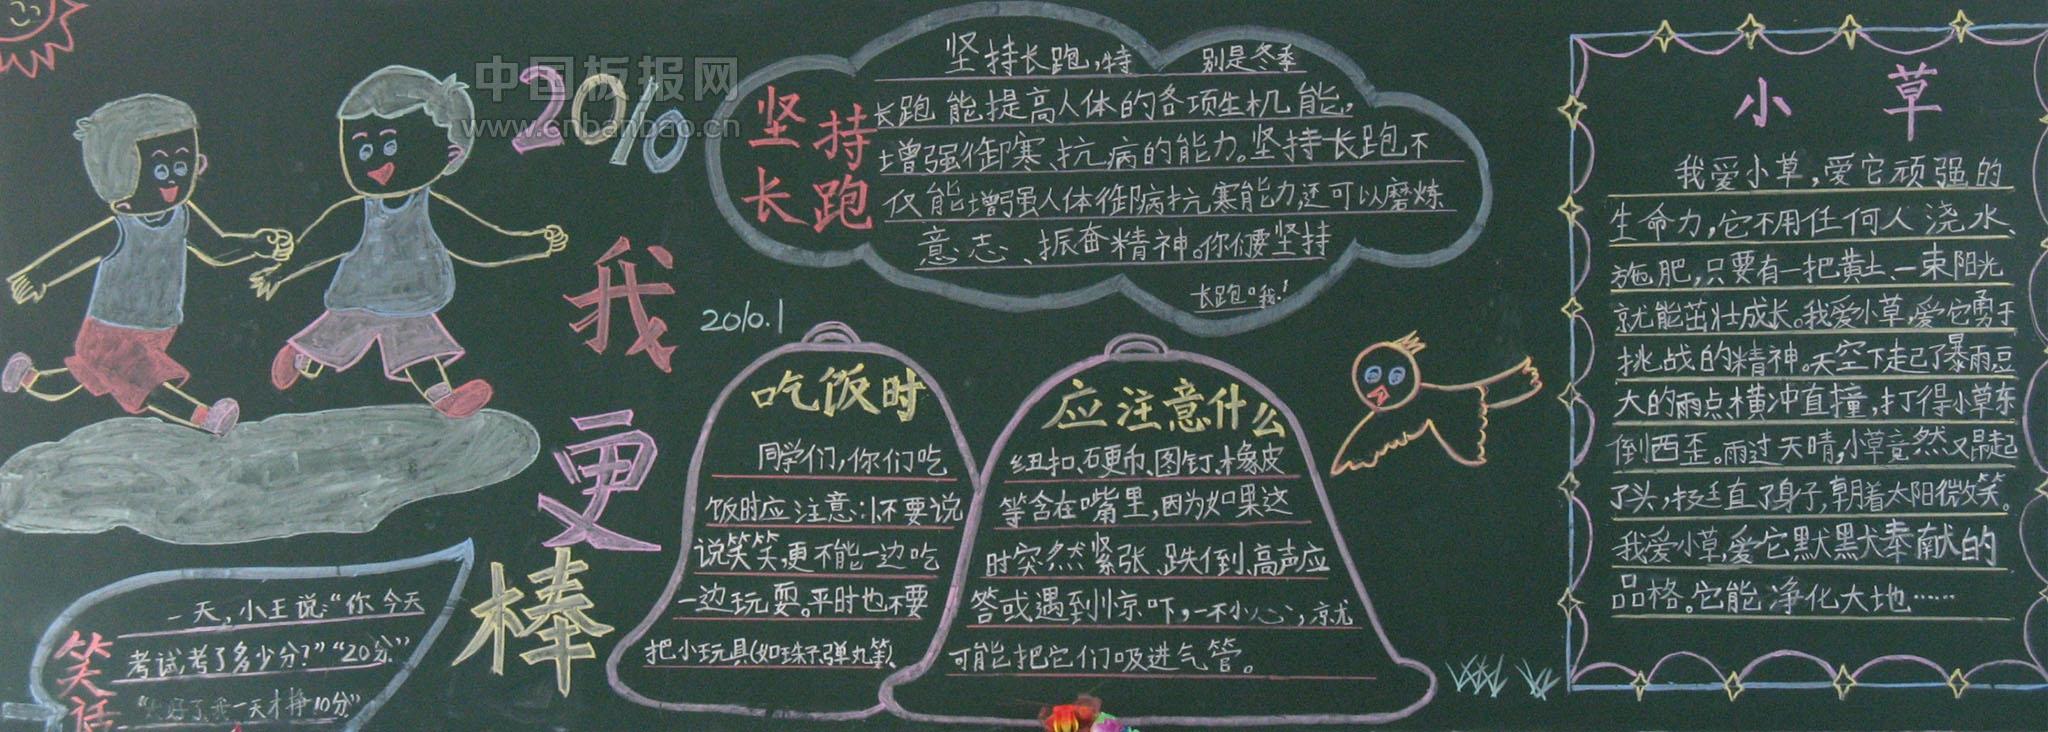 中国板报网
www.cnbanbao.cn
2010
我
更
棒
坚持
长跑
坚持长跑,特别是冬季
长跑能提高人体的各项生机能,
增强御寒、抗病的能力。坚持长跑不
仅能增强人体御病抗寒能力,还可以磨炼
意志、振奋精神。你们要坚持
长跑哦!
2010.1
吃饭时
同学们,你们吃
饭时应注意:不要说
说笑笑,更不能一边吃
一边玩耍。平时也不要
把小玩具(如珠子、弹丸、笔
应注意什么
纽扣、硬币、图钉、橡皮
等含在嘴里,因为如果这
时突然紧张、跌倒、高声应
答或遇到惊吓,一不小心,就
可能把它们吸进气管。
笑话
一天,小王说:“你今天
考试考了多少分?”“20分”
好了,我一天才挣10分”
小草
我爱小草,爱它顽强的
生命力,它不用任何人浇水、
施肥,只要有一把黄土、一束阳光
就能茁壮成长。我爱小草,爱它勇于
挑战的精神。天空下起了暴雨豆
大的雨点横冲直撞,打得小草东
倒西歪。雨过天晴,小草竟然又翘起
了头,挺直了身子,朝着太阳微笑。
我爱小草,爱它默默奉献的
品格。它能净化大地……